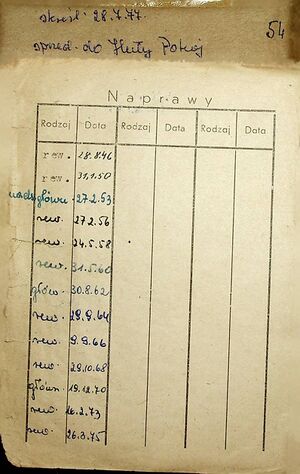 skreśl. 28.7.77.
sprzed. do Huty Pokój
54
Naprawy
Rodzaj Data Rodzaj Data Rodzaj Data
rew. 28.8.46
rew. 31.1.50
nadz. główn. 27.2.53
rew. 27.2.56
rew. 24.5.58
rew. 31.5.60
główn. 30.8.62
rew. 29.9.64
rew. 9.9.66
rew. 29.10.68
główn. 19.12.70
rew. 16.2.73
rew. 26.3.75